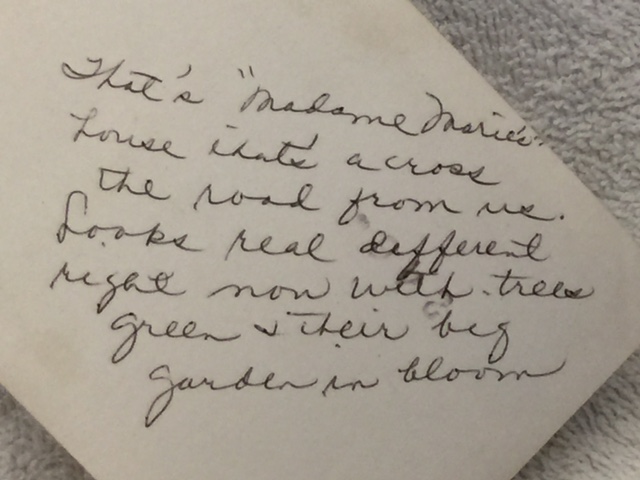 That's "Madame Marie's"
house thats across
the road from us.
Looks real different
right now with trees
green & their big
garden in bloom